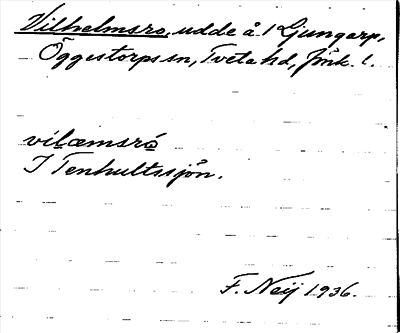 Vilhelmsro, udde å 1 Ljungarp,
Öggestorps sn, Tveta hd, Jönk. l.
vilæmsró
I Tenhultssjön.
F. Neij 1936.